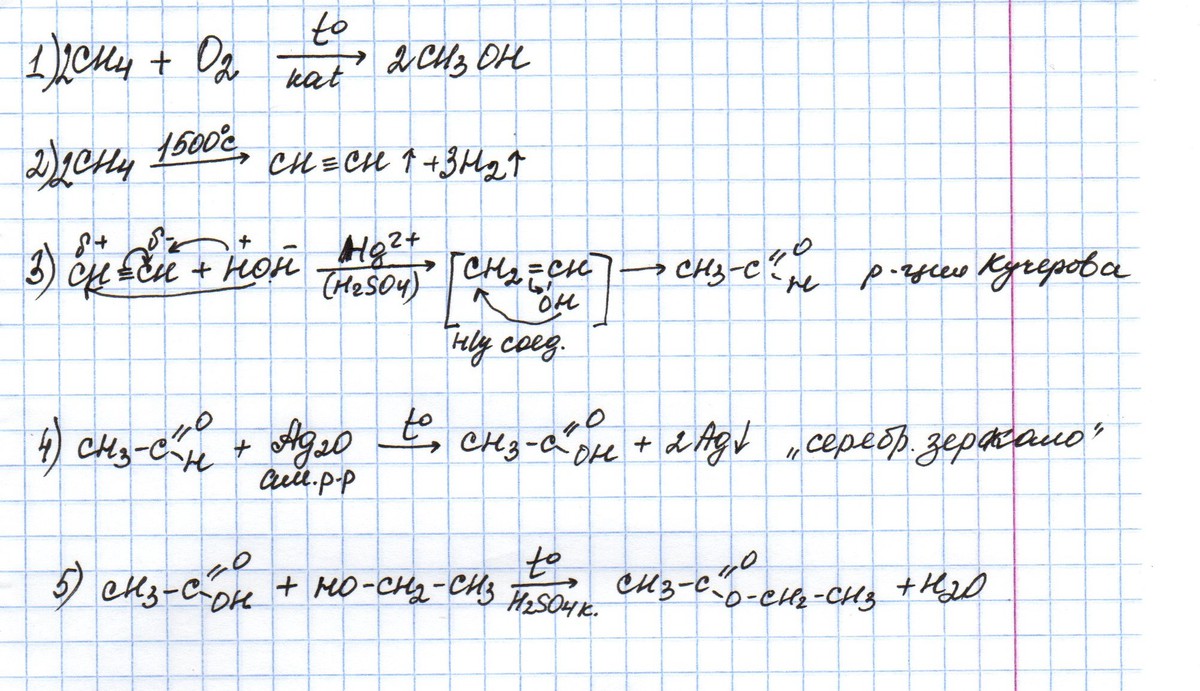 1) 2CH4 + O2 t° kat → 2CH3OH
2) 2CH4 1500°C → CH≡CH↑ + 3H2↑
3) δ+ CH ≡ δ- CH + H+ OH- Hg2+ (H2SO4) → [CH2=CH OH] → CH3-C=O H р-ция Кучерова
н/у соед.
4) CH3-C=O H + Ag2O t° → CH3-C=O OH + 2Ag↓ „серебр. зеркало"
ам. р-р
5) CH3-C=O OH + HO-CH2-CH3 t° H2SO4 к. → CH3-C=O O-CH2-CH3 + H2O